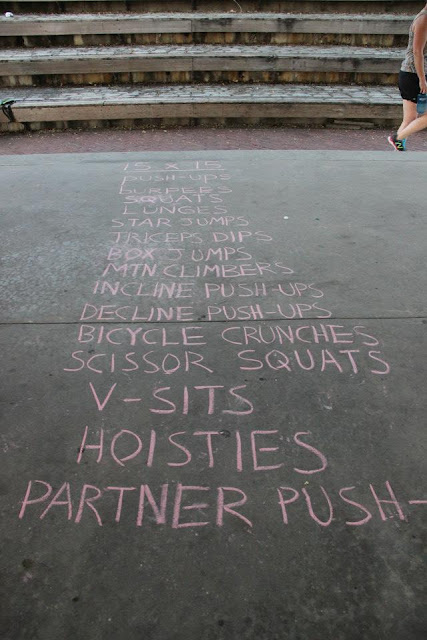 15 X 15
PUSH-UPS
BURPEES
SQUATS
LUNGES
STAR JUMPS
TRICEPS DIPS
BOX JUMPS
MTN CLIMBERS
INCLINE PUSH-UPS
DECLINE PUSH-UPS
BICYCLE CRUNCHES
SCISSOR SQUATS
V-SITS
HOISTIES
PARTNER PUSH-